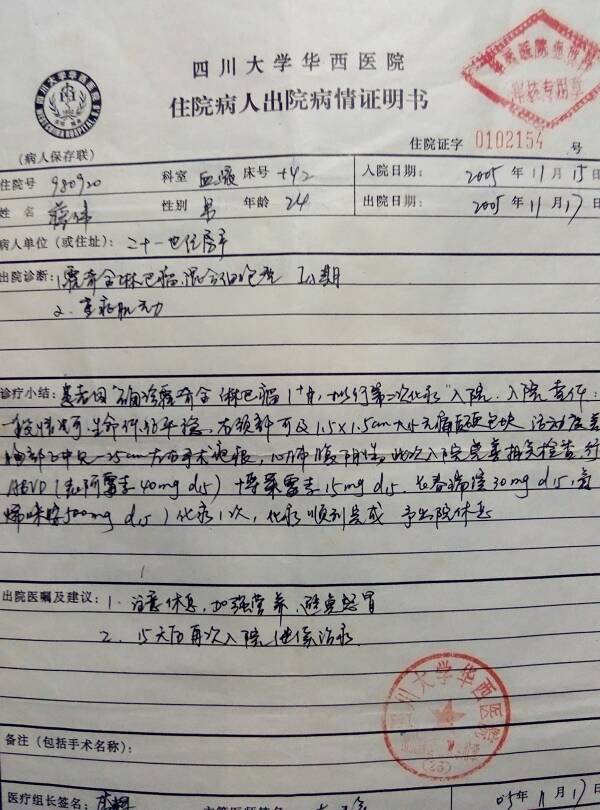 四川大学华西医院
住院病人出院病情证明书
(病人保存联)
住院证字 0102154 号
住院号 980920 科室 血液 床号 +42 入院日期: 2005 年 11 月 15 日
姓名 性别 男 年龄 24 出院日期: 2005 年 11 月 17 日
病人单位(或住址): 二十一世纪房子
出院诊断: 1.霍奇金淋巴瘤,混合细胞型
2. 重症肌无力
诊疗小结: 患者因"确诊霍奇金淋巴瘤1+月, 拟行第二次化疗"入院. 入院查体:
一般情况可.生命体征平稳, 右颈部可及1.5×1.5cm大小无痛质硬包块 活动度差
胸部正中见一25cm左右手术疤痕, 心肺腹阴性. 此次入院完善相关检查 行
ABVD ( 阿霉素40mg d1,15 博莱霉素15mg d1,15. 长春瑞滨30mg d1,15, 氮
烯咪胺500mg d1,15 ) 化疗1次, 化疗顺利完成 予出院休息
出院医嘱及建议: 1. 注意休息, 加强营养, 避免感冒
2. 15天后再次入院继续治疗
四川大学华西医院
(23)
备注(包括手术名称):
医疗组长签名: 05年11月17日